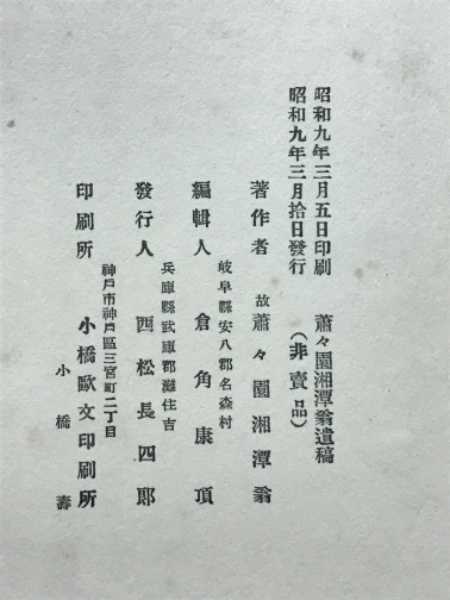 昭和九年三月五日印刷　蕭々園湘潭翁遺稿
昭和九年三月拾日發行　（非賣品）
著作者　故　蕭々園湘潭翁
岐阜縣安八郡名森村
編輯人　倉角康頂
兵庫縣武庫郡灘住吉
發行人　西松長四郎
神戸市神戸區三宮町二丁目
印刷所　小橋歐文印刷所
小橋壽